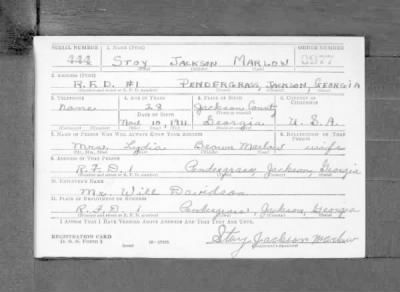 SERIAL NUMBER 1. NAME (Print) ORDER NUMBER
444 STOY JACKSON MARLOW 0977
(First) (Middle) (Last)
2. ADDRESS (Print)
R.F.D. #1 PENDERGRASS, JACKSON, GEORGIA
3. TELEPHONE 4. AGE IN YEARS 5. PLACE OF BIRTH 6. COUNTRY OF CITIZENSHIP
none 28 Jackson County
DATE OF BIRTH
Nov. 10, 1911 Georgia U.S.A.
7. NAME OF PERSON WHO WILL ALWAYS KNOW YOUR ADDRESS 8. RELATIONSHIP OF THAT PERSON
Mrs. Lydia Marlow wife
9. ADDRESS OF THAT PERSON
R.F.D. 1 Pendergrass Jackson Georgia
10. EMPLOYER'S NAME
Mr. Will Davidson
11. PLACE OF EMPLOYMENT OR BUSINESS
R.F.D. 1 Pendergrass, Jackson, Georgia
I AFFIRM THAT I HAVE VERIFIED ABOVE ANSWERS AND THAT THEY ARE TRUE.
REGISTRATION CARD
D. S. S. FORM 1
Stoy Jackson Marlow